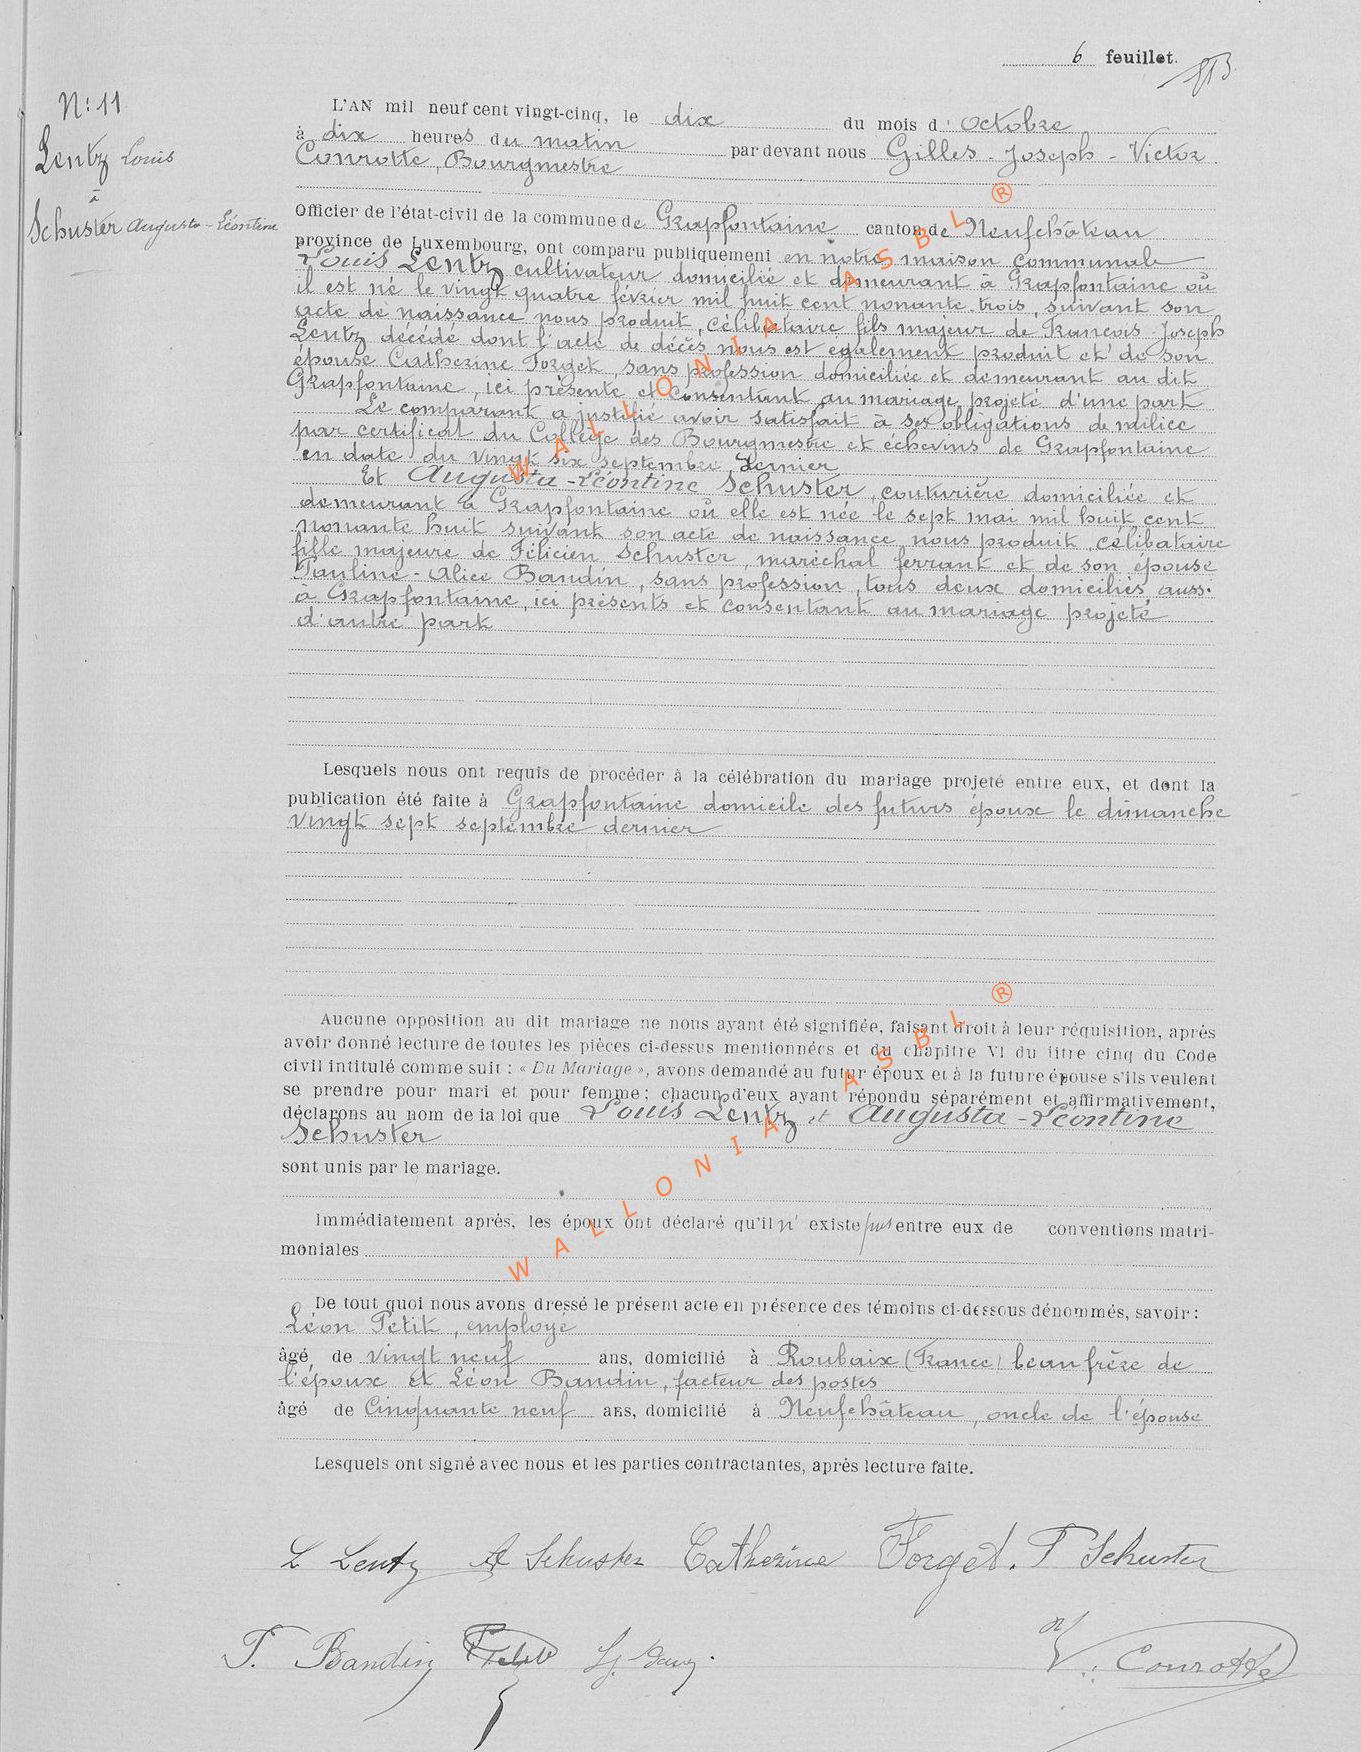 6 feuillet.
N: 11
Lentz Louis
à
Schuster Augusta-Léontine
L'AN mil neuf cent vingt-cinq, le dix du mois d'octobre
à dix heures du matin par devant nous Gilles-Joseph-Victor
Conrotte, Bourgmestre
Officier de l'état-civil de la commune de Grapfontaine canton de Neufchâteau
province de Luxembourg, ont comparu publiquement en notre maison communale
Louis Lentz cultivateur domicilié et demeurant à Grapfontaine où
il est né le vingt quatre février mil huit cent nonante-trois, suivant son
acte de naissance nous produit, célibataire fils majeur de François-Joseph
Lentz décédé dont l'acte de décès nous est également produit et de son
épouse Catherine Forget, sans profession domiciliée et demeurant au dit
Grapfontaine, ici présente et consentant au mariage projeté d'une part
Le comparant a justifié avoir satisfait à ses obligations de milice
par certificat du Collège des Bourgmestre et échevins de Grapfontaine
en date du vingt six septembre dernier
Et Augusta-Léontine Schuster, couturière domiciliée et
demeurant à Grapfontaine où elle est née le sept mai mil huit cent
nonante huit suivant son acte de naissance nous produit, célibataire
fille majeure de Félicien Schuster, maréchal ferrant et de son épouse
Pauline-Alice Bandin, sans profession, tous deux domiciliés aussi
à Grapfontaine, ici présents et consentant au mariage projeté
d'autre part
Lesquels nous ont requis de procéder à la célébration du mariage projeté entre eux, et dont la
publication été faite à Grapfontaine domicile des futurs époux le dimanche
vingt sept septembre dernier
Aucune opposition au dit mariage ne nous ayant été signifiée, faisant droit à leur réquisition, après
avoir donné lecture de toutes les pièces ci-dessus mentionnées et du chapitre VI du titre cinq du Code
civil intitulé comme suit : « Du Mariage », avons demandé au futur époux et à la future épouse s'ils veulent
se prendre pour mari et pour femme ; chacun d'eux ayant répondu séparément et affirmativement,
déclarons au nom de la loi que Louis Lentz et Augusta-Léontine
Schuster
sont unis par le mariage.
Immédiatement après, les époux ont déclaré qu'il n'existe pas entre eux de conventions matri-
moniales
De tout quoi nous avons dressé le présent acte en présence des témoins ci-dessous dénommés, savoir :
Léon Petit, employé
âgé de vingt neuf ans, domicilié à Roubaix (France) beau frère de
l'époux et Léon Bandin, facteur des postes
âgé de Cinquante neuf ans, domicilié à Neufchâteau, oncle de l'épouse
Lesquels ont signé avec nous et les parties contractantes, après lecture faite.
L Lentz A Schuster Catherine Forget. F Schuster
P. Bandin Petit V. Conrotte
WALLONIA ASBL ®
WALLONIA ASBL ®